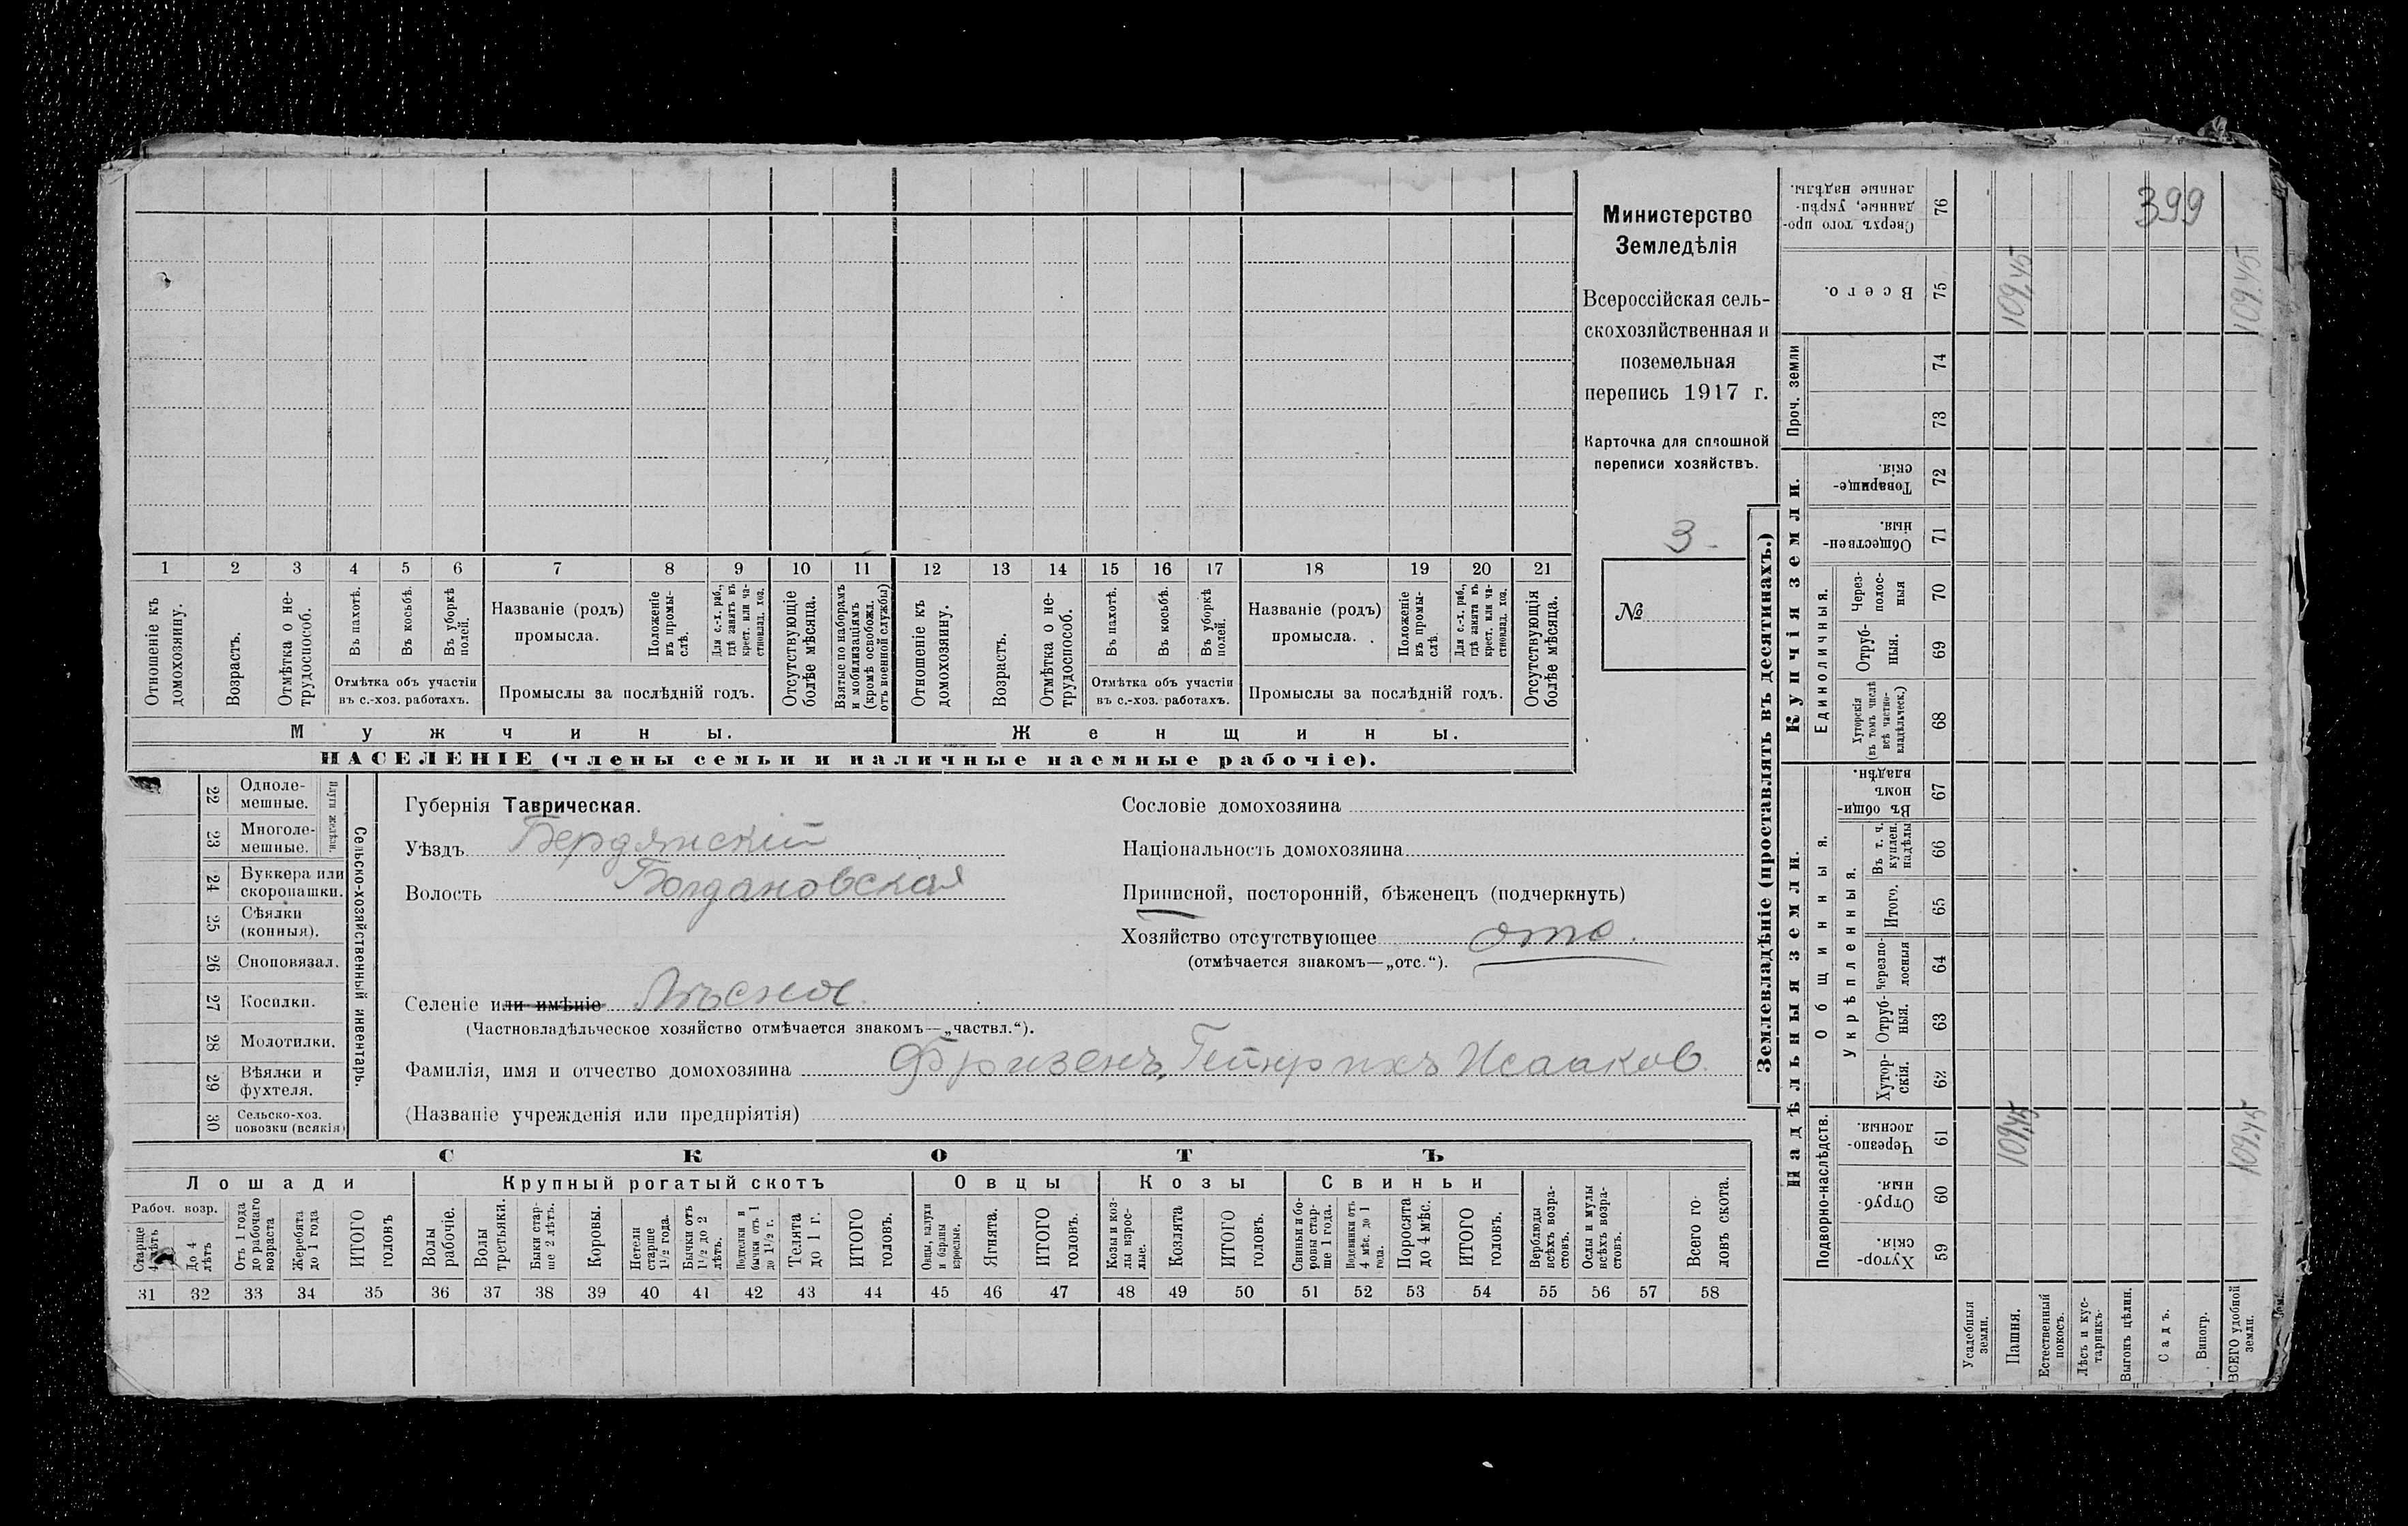 399
Министерство
Земледѣлія
Всероссійская сель-
скохозяйственная и
поземельная
перепись 1917 г.
Карточка для сплошной
переписи хозяйствъ.
3
№
1 2 3 4 5 6 7 8 9 10 11 12 13 14 15 16 17 18 19 20 21
Отношеніе къ домохозяину.
Возрастъ.
Отмѣтка о не-трудоспособ.
Въ пахотѣ.
Въ косьбѣ.
Въ уборкѣ полей.
Отмѣтка объ участіи
въ с.-хоз. работахъ.
Названіе (родъ)
промысла.
Положеніе въ промы-слѣ.
Для с.-х. раб., гдѣ занятъ въ крест. или ча-стновлад. хоз.
Промыслы за послѣдній годъ.
Отсутствующіе болѣе мѣсяца.
Взятые по наборамъ и мобилизаціямъ (кромѣ освобожд. отъ военной службы)
Отношеніе къ домохозяину.
Возрастъ.
Отмѣтка о не-трудоспособ.
Въ пахотѣ.
Въ косьбѣ.
Въ уборкѣ полей.
Отмѣтка объ участіи
въ с.-хоз. работахъ.
Названіе (родъ)
промысла.
Положеніе въ промы-слѣ.
Для с.-х. раб., гдѣ занята въ крест. или ча-стновлад. хоз.
Промыслы за послѣдній годъ.
Отсутствующія болѣе мѣсяца.
Мужчины.
Женщины.
НАСЕЛЕНІЕ (члены семьи и наличные наемные рабочіе).
Сельско-хозяйственный инвентарь.
Плуги желѣзн.
22 Одноле-мешные.
23 Многоле-мешные.
24 Буккера или скоропашки.
25 Сѣялки (конныя).
26 Сноповязал.
27 Косилки.
28 Молотилки.
29 Вѣялки и фухтеля.
30 Сельско-хоз. повозки (всякія)
Губернія Таврическая.
Уѣздъ Бердянскій
Волость Богдановская
Сословіе домохозяина
Національность домохозяина
Приписной, посторонній, бѣженецъ (подчеркнуть)
Хозяйство отсутствующее отс.
(отмѣчается знакомъ—„отс.“).
Селеніе или имѣніе Лѣсное
(Частновладѣльческое хозяйство отмѣчается знакомъ—„частвл.“).
Фамилія, имя и отчество домохозяина Фризенъ, Гейнрихъ Исааков.
(Названіе учрежденія или предпріятія)
СКОТЪ
Лошади
Крупный рогатый скотъ
Овцы
Козы
Свиньи
Рабоч. возр.
Старше 4 лѣтъ
До 4 лѣтъ
Отъ 1 года до рабочаго возраста
Жеребята до 1 года
ИТОГО головъ
Волы рабочіе.
Волы третьяки.
Быки стар-ше 2 лѣтъ.
Коровы.
Нетели старше 1½ года.
Бычки отъ 1½ до 2 лѣтъ.
Нетелки и бычки отъ 1 до 1½ г.
Телята до 1 г.
ИТОГО головъ.
Овцы, валухи и бараны взрослые.
Ягнята.
ИТОГО головъ.
Козы и коз-лы взрос-лые.
Козлята
ИТОГО головъ.
Свиньи и бо-ровы стар-ше 1 года.
Подсвинки отъ 4 мѣс. до 1 года.
Поросята до 4 мѣс.
ИТОГО головъ.
Верблюды всѣхъ возра-стовъ.
Ослы и мулы всѣхъ возра-стовъ.
Всего го-ловъ скота.
31 32 33 34 35 36 37 38 39 40 41 42 43 44 45 46 47 48 49 50 51 52 53 54 55 56 57 58
Землевладѣніе (проставлять въ десятинахъ.)
Надѣльныя земли.
Купчія земли.
Проч. земли
Подворно-наслѣдств.
Общинныя.
Укрѣпленныя.
Единоличныя.
Хутор-скія. 59
Отруб-ныя. 60
Черезпо-лосныя. 61
Хутор-скія. 62
Отруб-ныя. 63
Черезпо-лосныя 64
Итого. 65
Въ т. ч. куплен. надѣлы 66
Въ общи-номъ владѣн. 67
Хуторскія (въ томъ числѣ всѣ частно-владѣльческ.) 68
Отруб-ныя. 69
Через-полос-ныя 70
Обществен-ныя. 71
Товарище-скія. 72
73
74
Всего. 75
Сверхъ того про-данные, укрѣп-ленные надѣлы. 76
Усадебныя земли.
Пашня. 109,45 109,45
Естественный покосъ.
Лѣсъ и кус-тарникъ.
Выгонъ цѣлин.
Садъ.
Виногр.
ВСЕГО удобной земли. 109,45 109,45